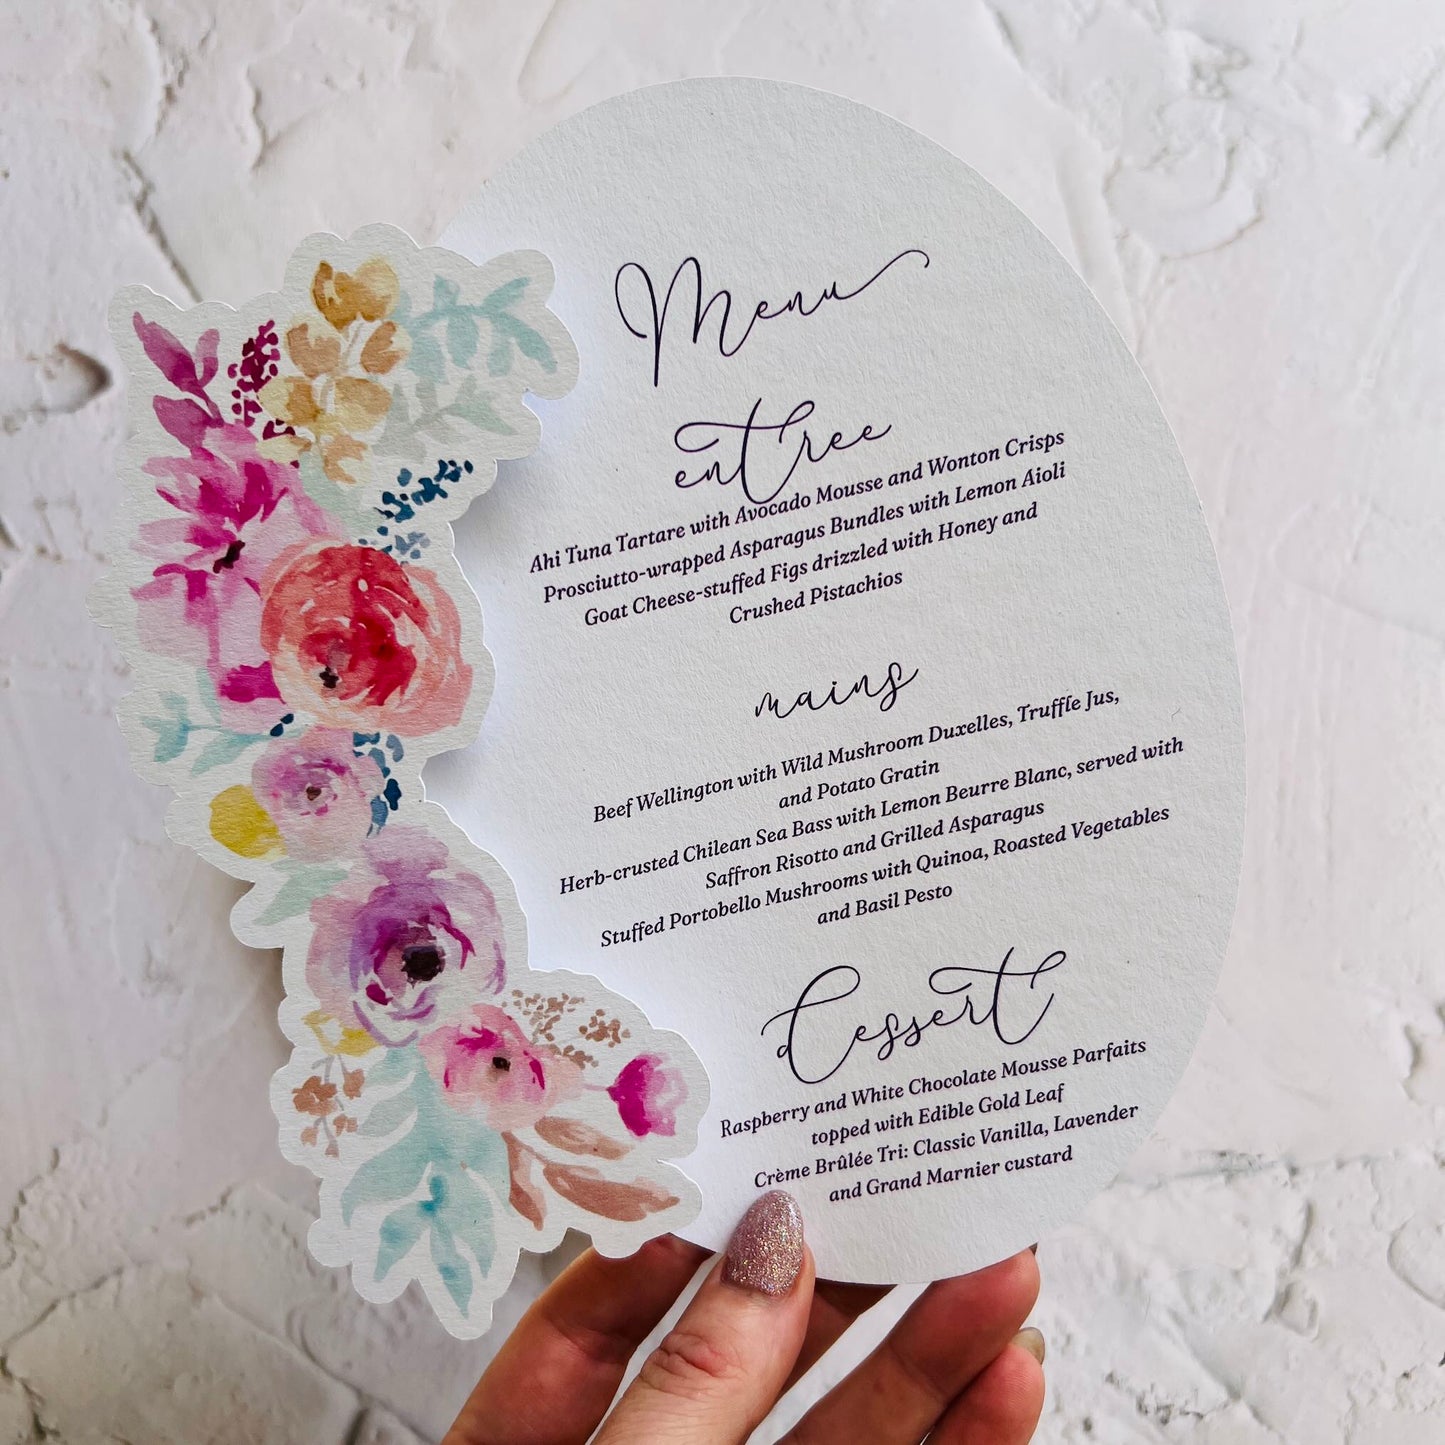 Menu
entree
Ahi Tuna Tartare with Avocado Mousse and Wonton Crisps
Prosciutto-wrapped Asparagus Bundles with Lemon Aioli
Goat Cheese-stuffed Figs drizzled with Honey and
Crushed Pistachios
mains
Beef Wellington with Wild Mushroom Duxelles, Truffle Jus,
and Potato Gratin
Herb-crusted Chilean Sea Bass with Lemon Beurre Blanc, served with
Saffron Risotto and Grilled Asparagus
Stuffed Portobello Mushrooms with Quinoa, Roasted Vegetables
and Basil Pesto
dessert
Raspberry and White Chocolate Mousse Parfaits
topped with Edible Gold Leaf
Crème Brûlée Tri: Classic Vanilla, Lavender
and Grand Marnier custard